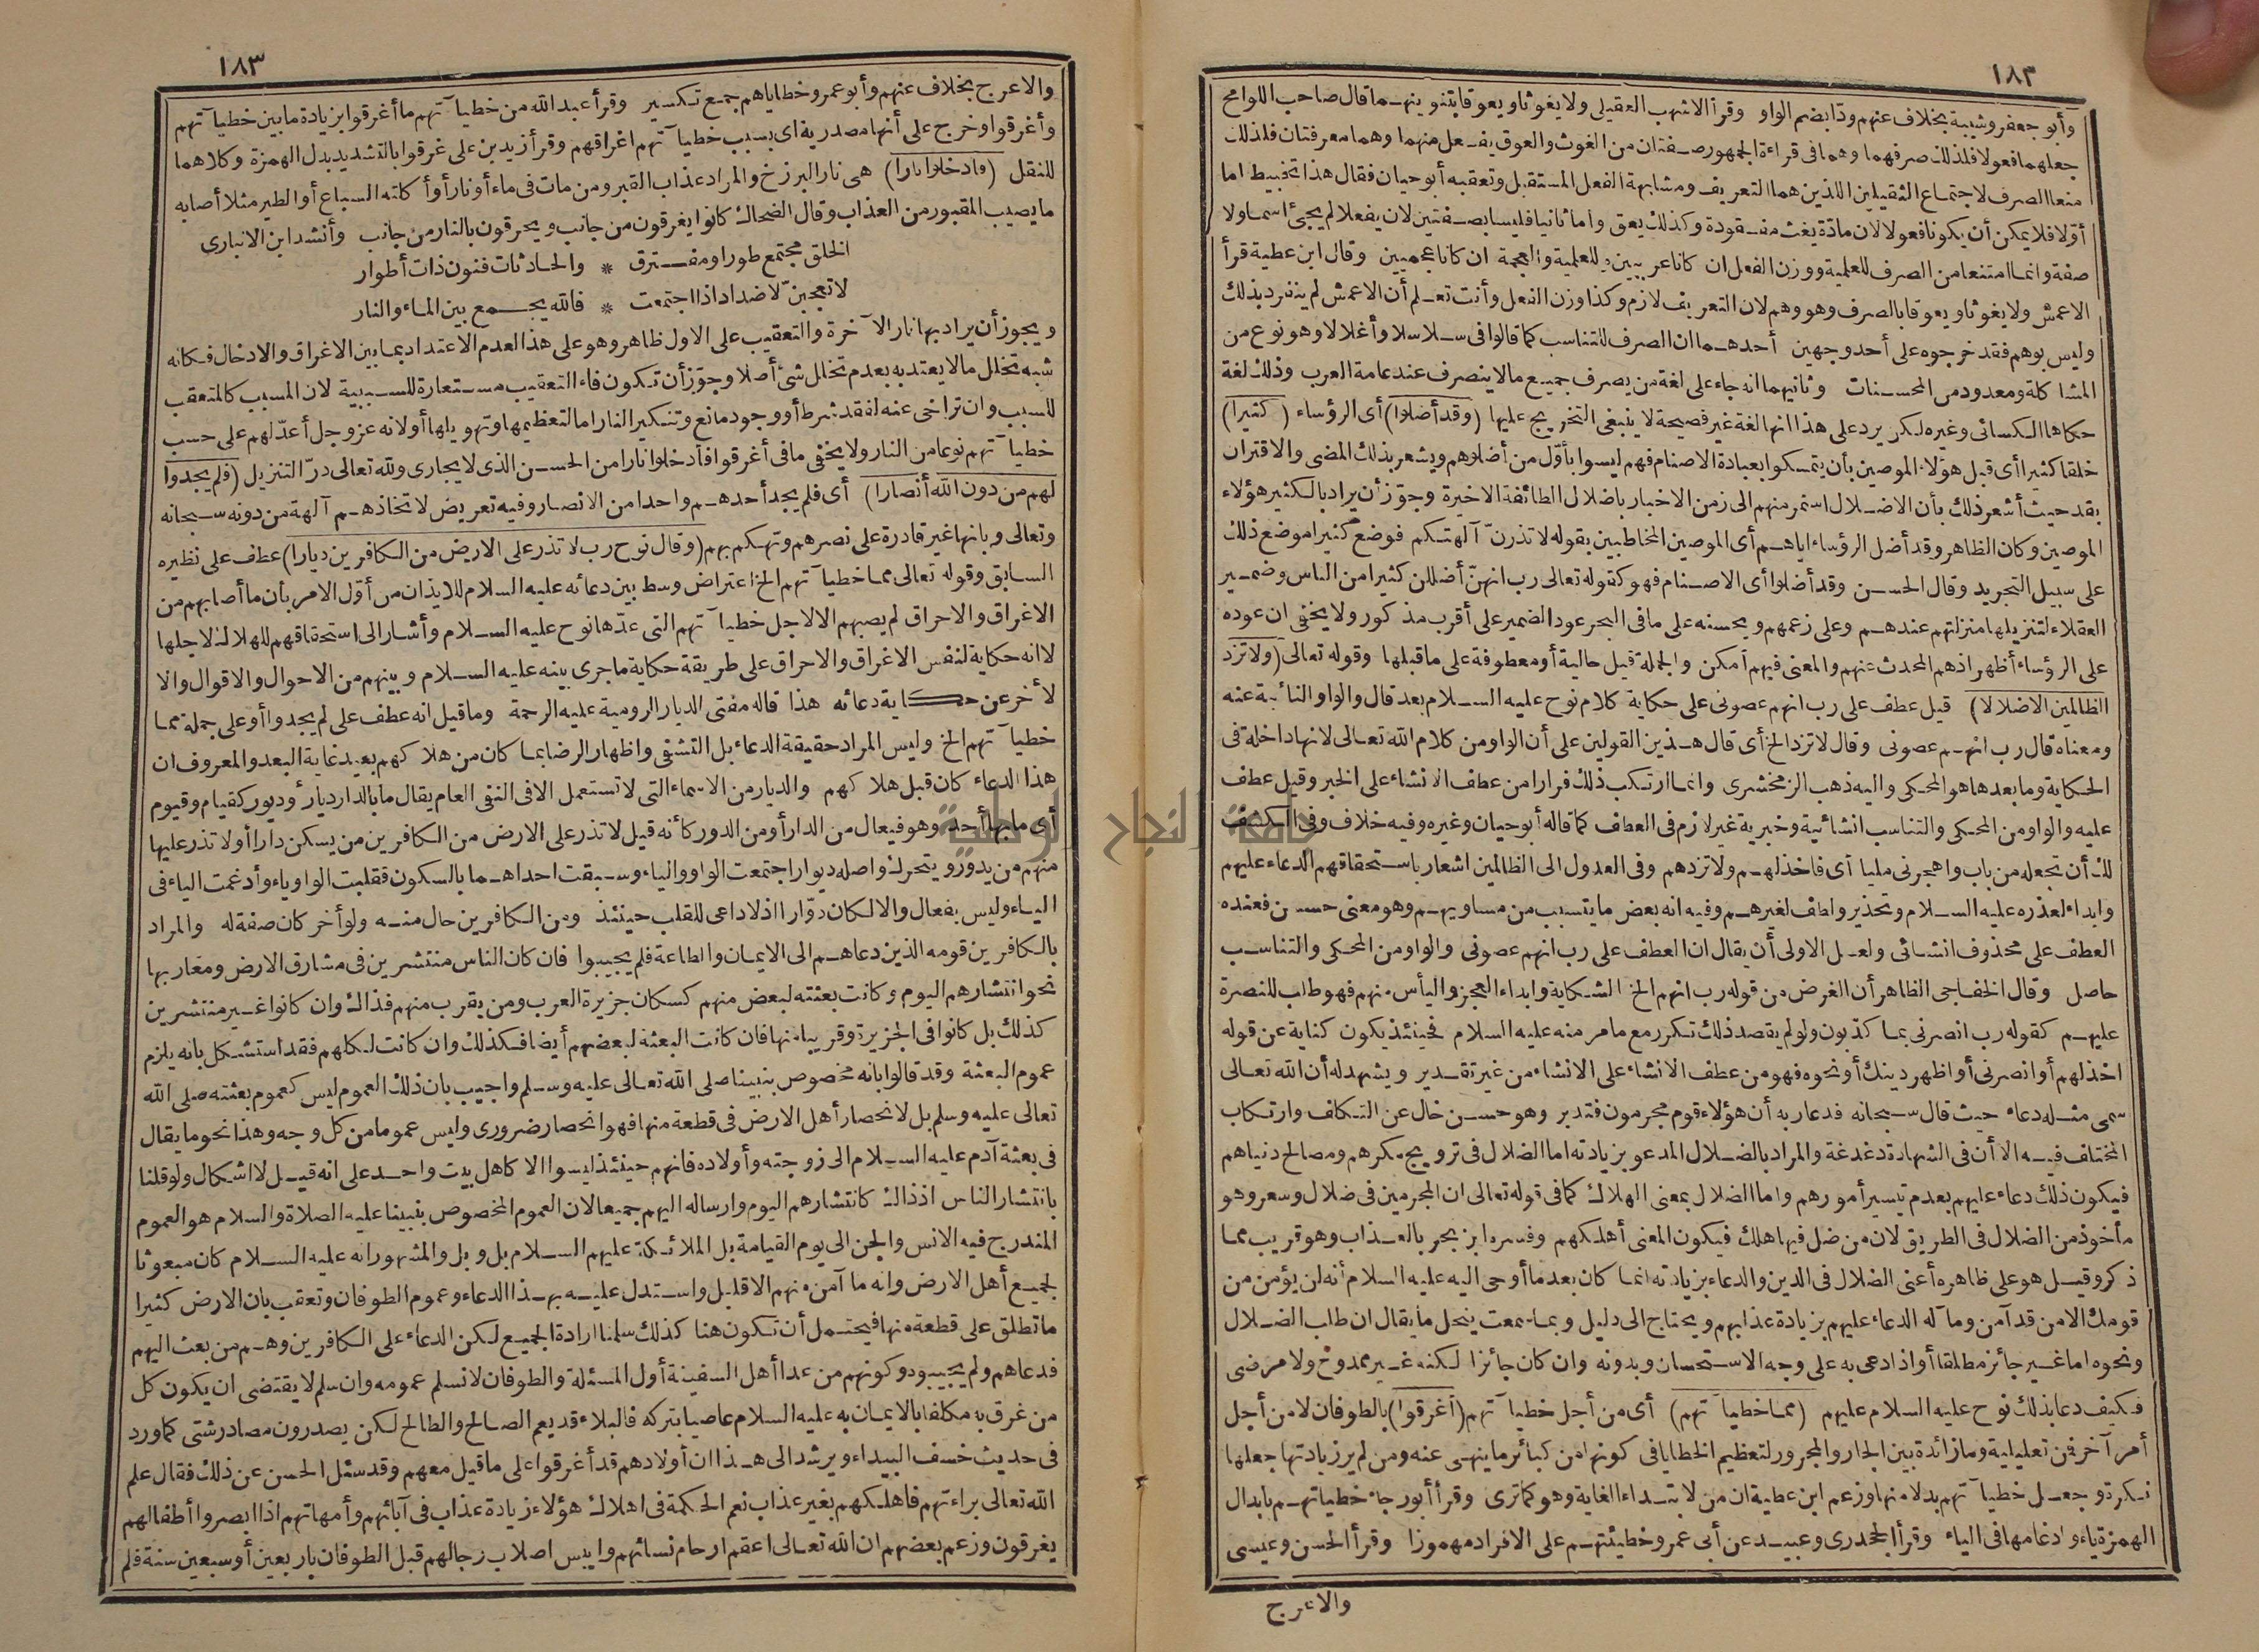 ١٨٣
وأبو جعفر وشيبة بخلاف عنهم ودا بضم الواو وقرأ الاشهب العقيلى ولا يغوثا ويعوقا بتنوينهما قال صاحب اللوامح
جعلهما فعولا فلذلك صرفهما وهما فى قراءة الجمهور صفتان من الغوث والعوق يفعل منهما وهما معرفتان فلذلك
منعا الصرف لاجتماع الثقيلين اللذين هما التعريف ومشابهة الفعل المستقبل وتعقبه أبو حيان فقال هذا تخبيط اما
أولا فلا يمكن أن يكونا فعولا لان مادة يغث مفقودة وكذلك يعق واما ثانيا فليسا بصفتين لان يفعلا لم يجئ اسما ولا
صفة وانما امتنعا من الصرف للعلمية ووزن الفعل ان كانا عربيين وللعلمية والعجمة ان كانا عجميين وقال ابن عطية قرأ
الاعمش ولا يغوثا ويعوقا بالصرف وهو وهم لان التعريف لازم وكذا وزن الفعل وأنت تعلم أن الاعمش لم ينفرد بذلك
وليس بوهم فقد خرجوه على أحد وجهين أحدهما ان الصرف للتناسب كما قالوا فى سلاسلا وأغلالا وهو نوع من
المشاكلة ومعدود من المحسنات وثانيهما انه جاء على لغة من يصرف جميع مالا ينصرف عند عامة العرب وذلك لغة
حكاها الكسائى وغيره لكن يرد على هذا انها لغة غير فصيحة لا ينبغى التخريج عليها (وقد أضلوا) أى الرؤساء (كثيرا)
خلقا كثيرا أى قبل هؤلاء الموصين بأن يتمسكوا بعبادة الاصنام فهم ليسوا بأول من أضلوهم ويشعر بذلك المضى والاقتران
بقد حيث أشعر ذلك بأن الاضلال استمر منهم الى زمن الاخبار باضلال الطائفة الاخيرة وجوز أن يراد بالكثير هؤلاء
الموصين وكان الظاهر وقد أضل الرؤساء اياهم أى الموصين المخاطبين بقوله لا تذرن آلهتكم فوضع كثيرا موضع ذلك
على سبيل التجريد وقال الحسن وقد أضلوا أى الاصنام فهو كقوله تعالى رب انهن أضللن كثيرا من الناس وضمير
العقلاء لتنزيلها منزلتهم عندهم وعلى زعمهم ويحسنه على ما فى البحر عود الضمير على أقرب مذكور ولا يخفى ان عوده
على الرؤساء أظهر اذهم المحدث عنهم والمعنى فيهم أمكن والجملة قيل حالية أو معطوفة على ما قبلها وقوله تعالى (ولا تزد
الظالمين الا ضلالا) قيل عطف على رب انهم عصونى على حكاية كلام نوح عليه السلام بعد قال والواو النائبة عنه
ومعناه قال رب انهم عصونى وقال لا تزد الخ أى قال هذين القولين على أن الواو من كلام الله تعالى لانها داخلة فى
الحكاية وما بعدها هو المحكى واليه ذهب الزمخشرى وانما ارتكب ذلك فرارا من عطف الانشاء على الخبر وقيل عطف
عليه والواو من المحكى والتناسب انشائية وخبرية غير لازم فى العطف كما قاله أبو حيان وغيره وفيه خلاف وفى الكشف
لك أن تجعله من باب واهجرنى مليا أى فاخذلهم ولا تزدهم وفى العدول الى الظالمين اشعار باستحقاقهم الدعاء عليهم
وابداء لعذره عليه السلام وتحذير ولطف لغيرهم وفيه انه بعض ما يتسبب من مساويهم وهو معنى حسن فعنده
العطف على محذوف انشائى ولعل الاولى أن يقال ان العطف على رب انهم عصونى والواو من المحكى والتناسب
حاصل وقال الخفاجى الظاهر أن الغرض من قوله رب انهم الخ الشكاية وابداء العجز واليأس منهم فهو طلب للنصرة
عليهم كقوله رب انصرنى بما كذبون ولو لم يقصد ذلك تكرر مع ما مر منه عليه السلام فحينئذ يكون كناية عن قوله
اخذلهم أو انصرنى أو اظهر دينك أو نحوه فهو من عطف الانشاء على الانشاء من غير تقدير ويشهد له أن الله تعالى
سمى مثله دعاء حيث قال سبحانه فدعا ربه أن هؤلاء قوم مجرمون فتدبر وهو حسن خال عن التكلف وارتكاب
المختلف فيه الا أن فى الشهادة دغدغة والمراد بالضلال المدعو بزيادته اما الضلال فى ترويج مكرهم ومصالح دنياهم
فيكون ذلك دعاء عليهم بعدم تيسير أمورهم واما الضلال بمعنى الهلاك كما فى قوله تعالى ان المجرمين فى ضلال وسعر وهو
مأخوذ من الضلال فى الطريق لان من ضل فيها هلك فيكون المعنى أهلكهم وفسره ابن بحر بالعذاب وهو قريب مما
ذكر وقيل هو على ظاهره أعنى الضلال فى الدين والدعاء بزيادته انما كان بعد ما أوحى اليه عليه السلام أنه لن يؤمن من
قومك الا من قد آمن وما له الدعاء عليهم بزيادة عذابهم ويحتاج الى دليل وبما سمعت ينحل ما يقال ان طلب الضلال
ونحوه اما غير جائز مطلقا أو اذا دعى به على وجه الاستحسان وبدونه وان كان جائزا لكنه غير ممدوح ولا مرضى
فكيف دعا بذلك نوح عليه السلام عليهم (مما خطيآتهم) أى من أجل خطيآتهم (أغرقوا) بالطوفان لا من أجل
أمر آخر فمن تعليلية وما زائدة بين الجار والمجرور لتعظيم الخطايا فى كونها من كبائر ما ينهى عنه ومن لم ير زيادتها جعلها
نكرة وجعل خطيآتهم بدلا منها وزعم ابن عطية ان من لابتداء الغاية وهو كما ترى وقرأ أبو رجاء خطياتهم بابدال
الهمزة ياء وادغامها فى الياء وقرأ الجحدرى وعبيد عن أبى عمرو خطيئتهم على الافراد مهموزا وقرأ الحسن وعيسى
والاعرج
١٨٣
والاعرج بخلاف عنهم وأبو عمرو خطاياهم جمع تكسير وقرأ عبد الله من خطيآتهم ما أغرقوا بزيادة ما بين خطيآتهم
وأغرقوا وخرج على أنها مصدرية اى بسبب خطيآتهم اغراقهم وقرأ زيد بن على غرقوا بالتشديد بدل الهمزة وكلاهما
للنقل (فادخلوا نارا) هى نار البرزخ والمراد عذاب القبر ومن مات فى ماء أو نار أو أكلته السباع أو الطير مثلا أصابه
ما يصيب المقبور من العذاب وقال الضحاك كانوا يغرقون من جانب ويحرقون بالنار من جانب وأنشد ابن الانبارى
الخلق مجتمع طورا ومفترق * والحادثات فنون ذات أطوار
لا تعجبن لاضداد اذا اجتمعت * فالله يجمع بين الماء والنار
ويجوز أن يراد بها نار الآخرة والتعقيب على الاول ظاهر وهو على هذا لعدم الاعتداد بما بين الاغراق والادخال فكانه
شبه تخلل مالا يعتد به بعدم تخلل شئ أصلا وجوز أن تكون فاء التعقيب مستعارة للسببية لان المسبب كالمتعقب
للسبب وان تراخى عنه لفقد شرط أو وجود مانع وتنكير النار اما لتعظيمها وتهويلها أو لانه عز وجل أعد لهم على حسب
خطيآتهم نوعا من النار ولا يخفى ما فى أغرقوا فأدخلوا نارا من الحسن الذى لا يجارى ولله تعالى در التنزيل (فلم يجدوا
لهم من دون الله أنصارا) أى فلم يجد أحدهم واحدا من الانصار وفيه تعريض لاتخاذهم آلهة من دونه سبحانه
وتعالى وبانها غير قادرة على نصرهم وتهكم بهم (وقال نوح رب لا تذر على الارض من الكافرين ديارا) عطف على نظيره
السابق وقوله تعالى مما خطيآتهم الخ اعتراض وسط بين دعائه عليه السلام للايذان من أول الامر بأن ما أصابهم من
الاغراق والاحراق لم يصبهم الا لاجل خطيآتهم التى عدها نوح عليه السلام وأشار الى استحقاقهم للهلاك لاجلها
لا انه حكاية لنفس الاغراق والاحراق على طريقة حكاية ما جرى بينه عليه السلام وبينهم من الاحوال والاقوال والا
لأخر عن حكاية دعائه هذا قاله مفتى الديار الرومية عليه الرحمة وما قيل انه عطف على لم يجدوا أو على جملة مما
خطيآتهم الخ وليس المراد حقيقة الدعاء بل التشفى واظهار الرضا بما كان من هلاكهم بعيد غاية البعد والمعروف ان
هذا الدعاء كان قبل هلاكهم والديار من الاسماء التى لا تستعمل الا فى النفى العام يقال ما بالدار ديار أو ديور كقيام وقيوم
أى ما بها أحد وهو فيعال من الدار أو من الدور كأنه قيل لا تذر على الارض من الكافرين من يسكن دارا أو لا تذر عليها
منهم من يدور ويتحرك واصله ديوار اجتمعت الواو والياء وسبقت احداهما بالسكون فقلبت الواو ياء وأدغمت الياء فى
الياء وليس بفعال والا لكان دوارا اذ لا داعى للقلب حينئذ ومن الكافرين حال منه ولو أخر كان صفة له والمراد
بالكافرين قومه الذين دعاهم الى الايمان والطاعة فلم يجيبوا فان كان الناس منتشرين فى مشارق الارض ومغاربها
نحو انتشارهم اليوم وكانت بعثته لبعض منهم كسكان جزيرة العرب ومن يقرب منهم فذاك وان كانوا غير منتشرين
كذلك بل كانوا فى الجزيرة وقريبا منها فان كانت البعثة لبعضهم أيضا فكذلك وان كانت لكلهم فقد استشكل بانه يلزم
عموم البعثة وقد قالوا بانه مخصوص بنبينا صلى الله تعالى عليه وسلم واجيب بان ذلك العموم ليس كعموم بعثته صلى الله
تعالى عليه وسلم بل لانحصار أهل الارض فى قطعة منها فهو انحصار ضرورى وليس عموما من كل وجه وهذا نحو ما يقال
فى بعثة آدم عليه السلام الى زوجته وأولاده فانهم حينئذ ليسوا الا كاهل بيت واحد على انه قيل لا اشكال ولو قلنا
بانتشار الناس اذ ذاك كانتشارهم اليوم وارساله اليهم جميعا لان العموم المخصوص بنبينا عليه الصلاة والسلام هو العموم
المندرج فيه الانس والجن الى يوم القيامة بل الملائكة عليهم السلام بل وبل والمشهور انه عليه السلام كان مبعوثا
لجميع أهل الارض وانه ما آمن منهم الا قليل واستدل عليه بهذا الدعاء وعموم الطوفان وتعقب بان الارض كثيرا
ما تطلق على قطعة منها فيحتمل أن تكون هنا كذلك سلمنا ارادة الجميع لكن الدعاء على الكافرين وهم من بعث اليهم
فدعاهم ولم يجيبوه وكونهم من عدا أهل السفينة أول المسئلة والطوفان لا نسلم عمومه وان سلم لا يقتضى ان يكون كل
من غرق به مكلفا بالايمان به عليه السلام عاصيا بتركه فالبلاء قد يعم الصالح والطالح لكن يصدرون مصادر شتى كما ورد
فى حديث خسف البيداء ويرشد الى هذا ان أولادهم قد أغرقوا على ما قيل معهم وقد سئل الحسن عن ذلك فقال علم
الله تعالى براءتهم فاهلكهم بغير عذاب نعم الحكمة فى اهلاك هؤلاء زيادة عذاب فى آبائهم وأمهاتهم اذا ابصروا أطفالهم
يغرقون وزعم بعضهم ان الله تعالى اعقم ارحام نسائهم وايبس اصلاب رجالهم قبل الطوفان باربعين أو سبعين سنة فلم
جامعة النجاح الوطنية